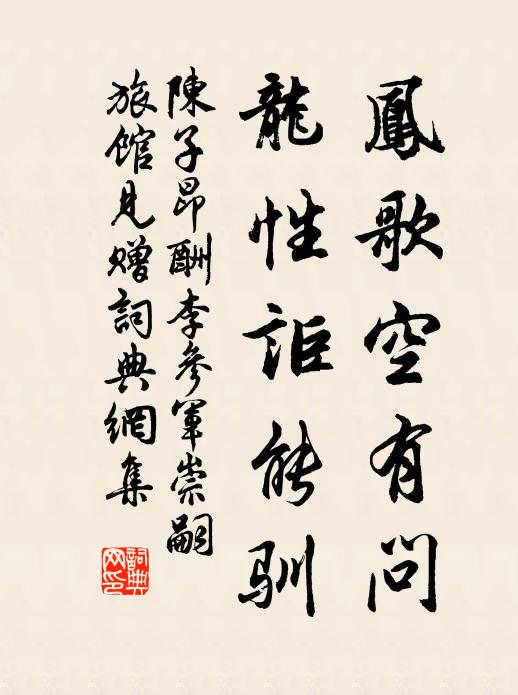 鳳歌空有問
龍性詎能馴
陳子昂酬李參軍崇嗣
旅館見贈詞典網集
詞典
网印